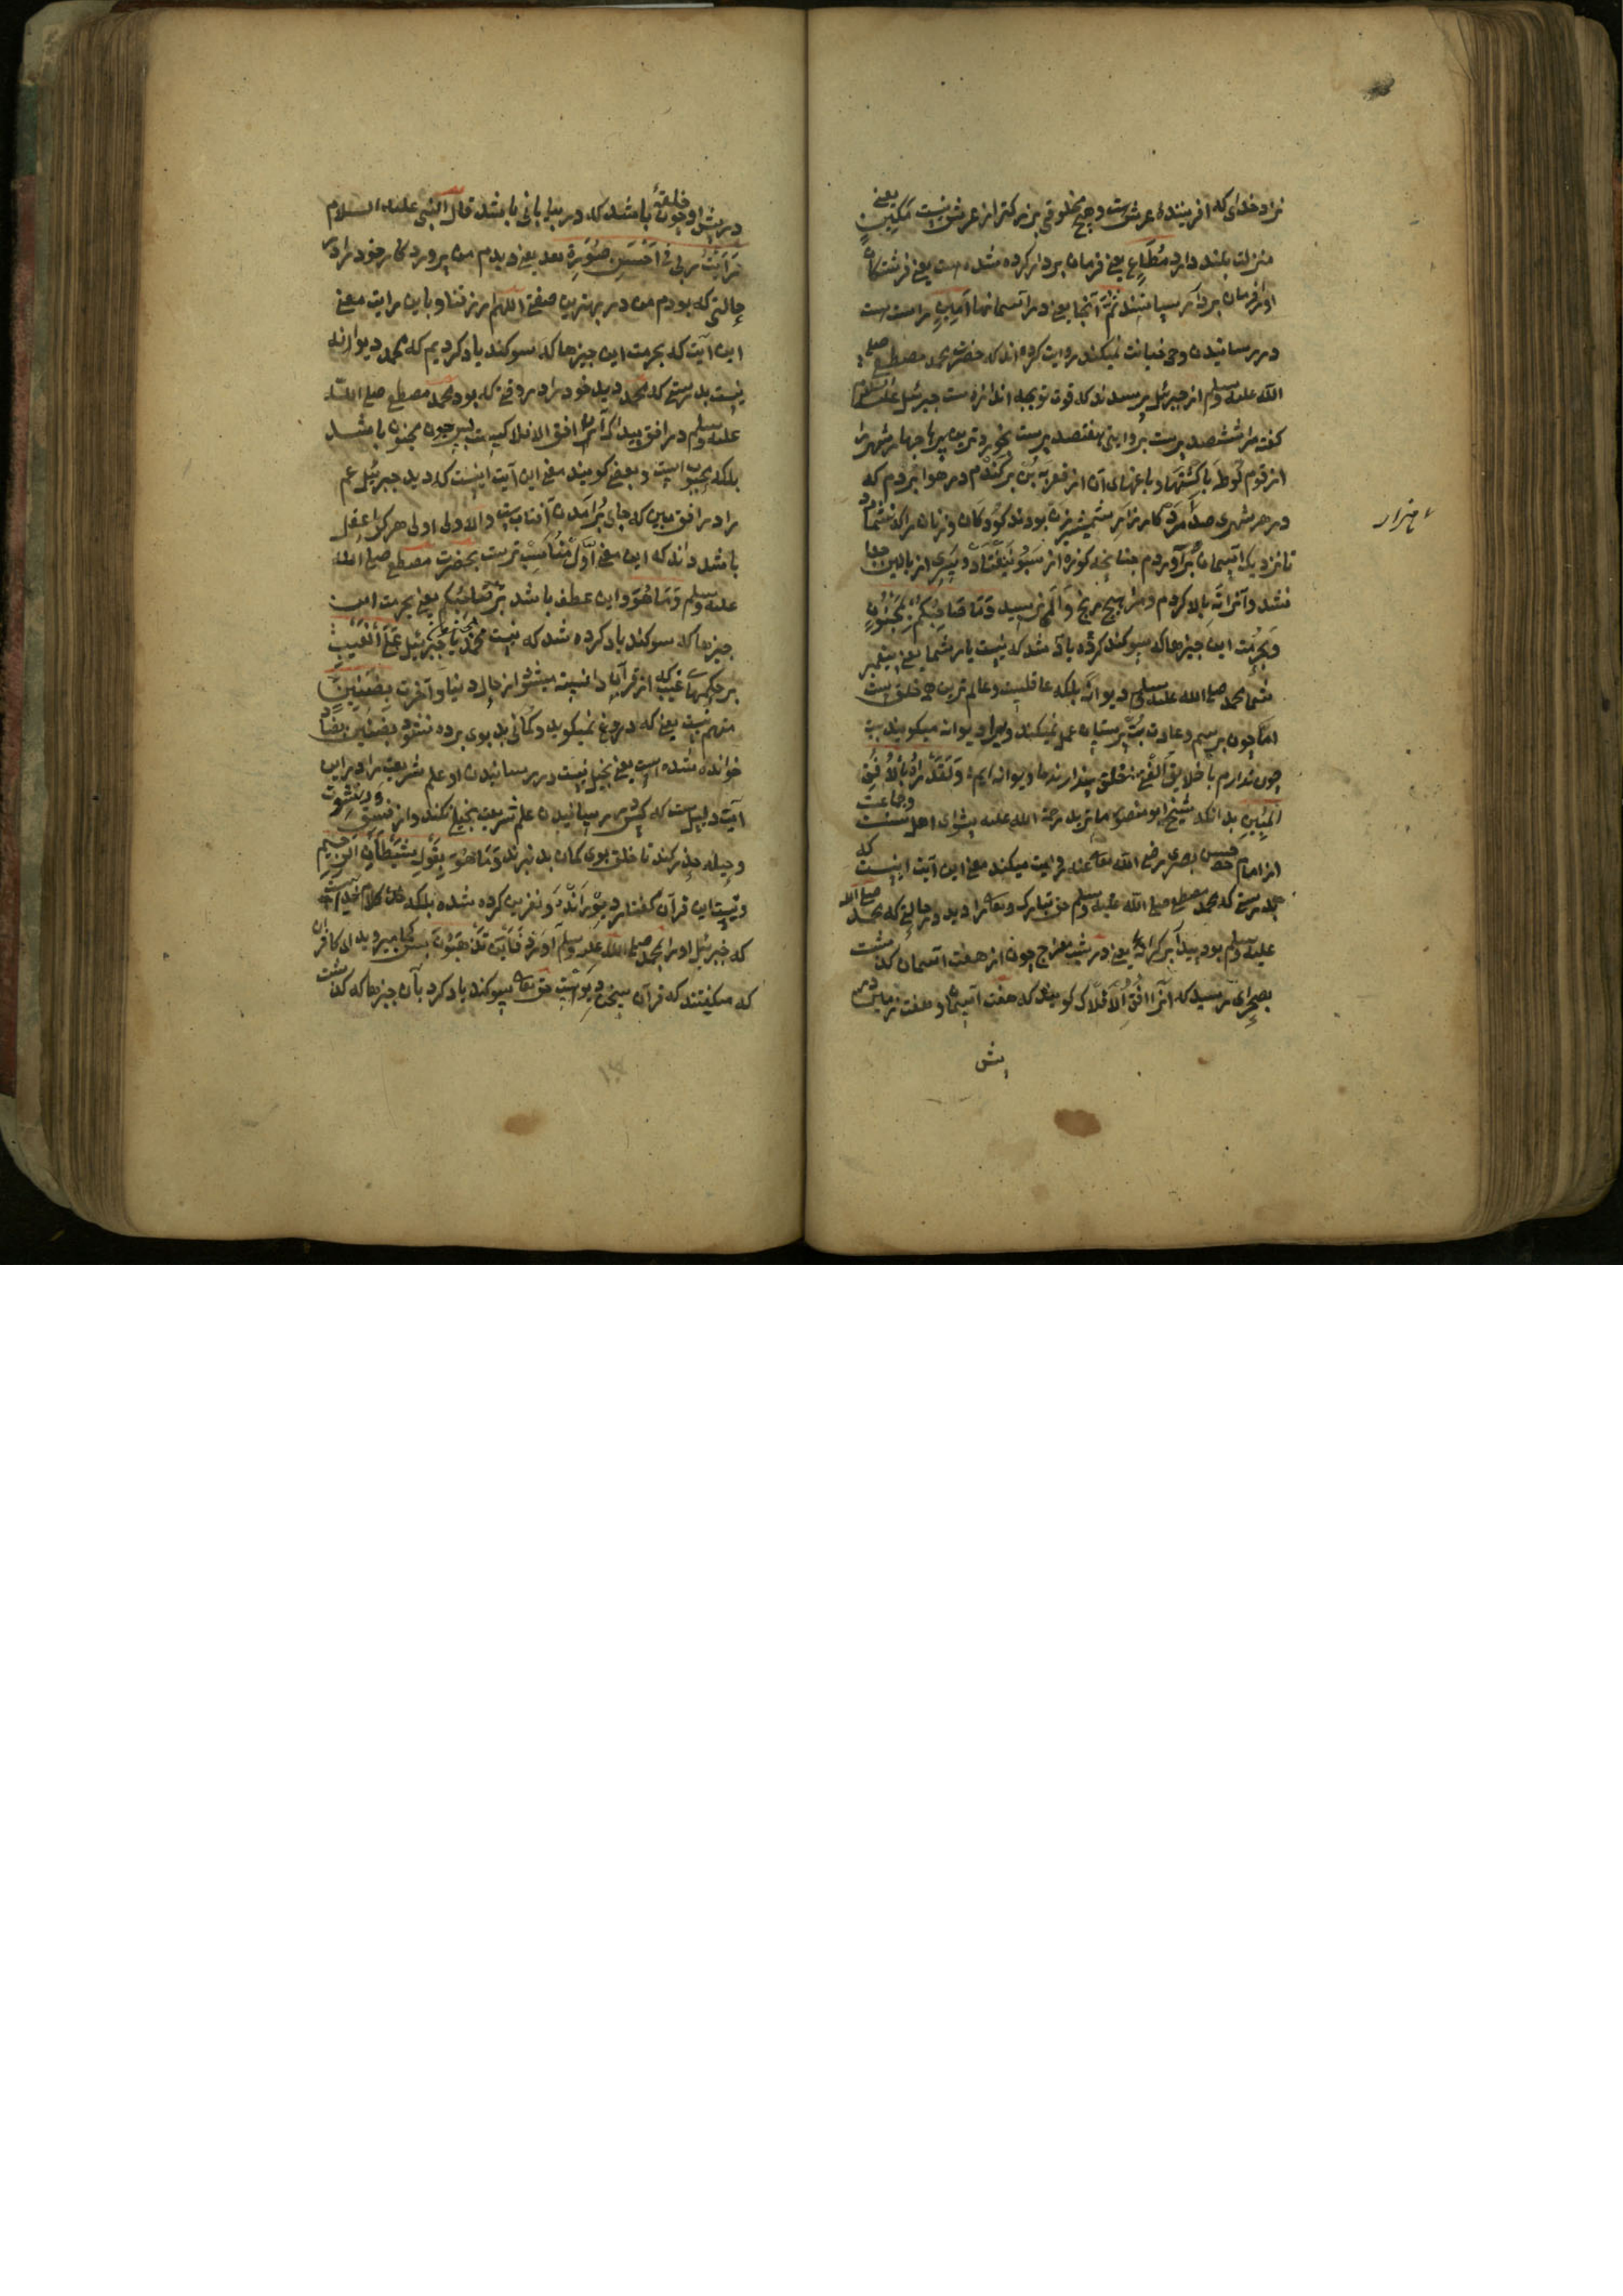 نزد خدای که افریننده عرش است و هیچ مخلوقی بزرکتر از عرش نیست مَكِينٍ یعنی
منزلت بلند دارد مُطَاعٍ یعنی فرمان بردار کرده شده است یعنی فرشتکان
او را فرمان بردار میباشند ثَمَّ آنجا یعنی در آسمانها اَمِينٍ راست است
در رسانیدن وحی خیانت نمیکند روایت کرده اند که حضرت محمد مصطفی صلی
الله علیه وسلم از جبرئیل پرسیدند که قوت تو بچه اندازه است جبرئیل علیه السلام
کفت مرا ششصد پر است بروایتی هفتصد پر است بخوردترین پرها چهار شهر را
از قوم لوط با کشتها و باغهای آن از قعر به بُن برکندم در هوا بردم که
در هر شهری صد مرد کارزار شمشیرزن بودند کودکان و زنان را که شمارد
تا نزدیک آسمان برآوردم چنانچه کوزه از سبو نیفتاد و پیری از بالین جدا
نشد و آنرا ته بالا کردم و مرا هیچ رنج و الم نرسید وَمَا صَاحِبُكُمْ بِمَجْنُونٍ
و بحرمت این چیزها که سوکند کرده یاد شد که نیست یار شما یعنی پیغمبر
شما محمد صلی الله علیه وسلم دیوانه بلکه عاقلیست و عالم ترین همه خلق است
اما چون برسم و عادت بت پرستان عمل نمیکند ویرا دیوانه میکویند بیت
چون ندارم با خلایق الفتی خلق پندارند ما دیوانه ایم وَلَقَدْ رَاٰهُ بِالْاُفُقِ
الْمُبِينِ بدانکه شیخ ابو منصور ماترید رحمة الله علیه پیشوای اهل سنت وجماعت
از امام حسن بصری رضی الله تعالی عنه روایت میکند معنی این آیت اینست که
بدرستی که محمد مصطفی صلی الله علیه وسلم حق تبارک وتعالی را دید در حالتی که محمد صلی الله
علیه وسلم بود پیدا بر کرانه یعنی در شب معراج چون از هفت آسمان کذشت
بصحرای رسید که آنرا افق الافلاک کویند که هفت آسمان و هفت زمین در
پیش
ء ضرار
در پیش او چون خلقهٔ باشد که در بیابانی باشد قال النبی علیه السلام
رَاَيْتُ ربی فی اَحْسَنِ صُوْرَةٍ بعد یعنی دیدم من پروردکار خود را در
حالتی که بودم من در بهترین صفتی اللهم ارزقنا و باین روایت معنی
این آیت که بحرمت این چیزها که سوکند یاد کردیم که محمد دیوانه
نیست بدرستی که محمد دید خود را در وقتی که بود محمد مصطفی صلی الله
علیه وسلم در افق پیدا که آن افق الافلاک است پس چون مجنون باشد
بلکه محبوب است و بعضی کویند معنی این آیت اینست که دید جبرئیل عم
را در افق مبین که جای برآمدن آفتاب است والاول اولی هر کرا عقل
باشد داند که این معنی اوّل مناسب تر است بحضرت مصطفی صلی الله
علیه وسلم وَمَا هُوَ و این عطف باشد بر صَاحِبُكُمْ یعنی بحرمت این
چیزها که سوکند یاد کرده شد که نیست محمد یا جبرئیل عَلَى الْغَيْبِ
بر حکمهای غیب که از قرآن دانسته میشود از حال دنیا و آخرت بِضَنِينٍ
متهم نیست یعنی که دروغ نمیکوید و کمانی بد بوی برده نشود بِضَنِينٍ بضاد
خوانده شده است یعنی بخیل نیست در رسانیدن او علم شریعت را در این
آیت دلیل است که کس در رسانیدن علم شریعت بخیلی نکند و از فسق و رشوت
و حیله حذر کند تا خلق بوی کمان بد نبرند وَمَا هُوَ بِقَوْلِ شَيْطَانٍ الرَجِيمٍ
و نیست این قرآن کفتار دیو رانده و نفرین کرده شده بلکه کلام خداست
که جبرئیل او را بمحمد صلی الله علیه وسلم آورد فَاَيْنَ تَذْهَبُوْنَ پس کجا میروید ای کافران
که میکفتند که قرآن سخن دیو است حق تعالی سوکند یاد کرد بآن چیزها که کذشت